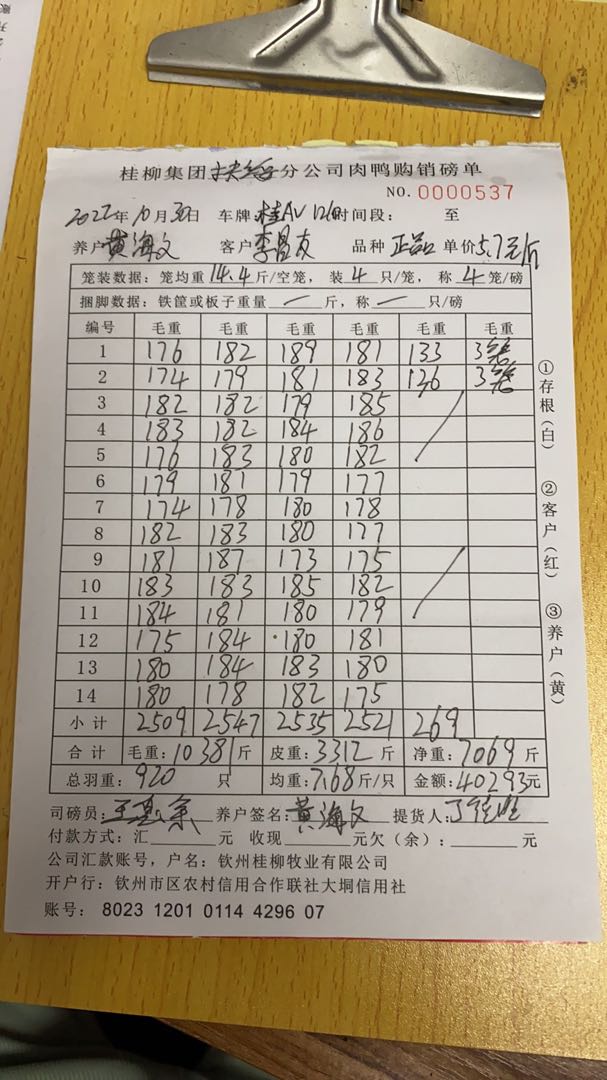 桂柳集团 分公司肉鸭购销磅单
NO.0000537
2022年10月30日 车牌:桂AV 时间段: 至
养户黄海文 客户李昌友 品种 正品 单价5.7元/斤
笼装数据:笼均重14.4斤/空笼,装4只/笼,称4笼/磅
捆脚数据:铁筐或板子重量—斤,称—只/磅
编号 毛重 毛重 毛重 毛重 毛重 毛重
1 176 182 189 181 133 3笼
2 174 179 181 183 136 3笼
3 182 182 179 185
4 183 182 184 186
5 176 183 180 182
6 179 181 179 177
7 174 178 180 178
8 182 183 180 177
9 181 187 173 175
10 183 183 185 182
11 184 181 180 179
12 175 184 180 181
13 180 184 183 180
14 180 178 182 175
小计 2509 2547 2535 2521 269
合计 毛重:10381斤 皮重:3312斤 净重:7069斤
总羽重:920只 均重:7.68斤/只 金额:40293元
司磅员: 养户签名:黄海文 提货人:
付款方式:汇 元 收现 元欠(余): 元
公司汇款账号,户名:钦州桂柳牧业有限公司
开户行:钦州市区农村信用合作联社大垌信用社
账号: 8023 1201 0114 4296 07
①存根(白)
②客户(红)
③养户(黄)